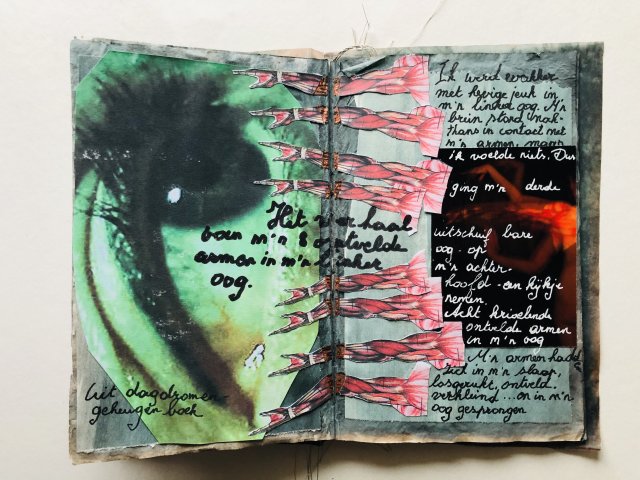 Het verhaal
boven m'n 8 ontvelde
armen in m'n linker
oog.
Uit dagdromen-
geheugen boek
Ik werd wakker
met hevige jeuk in
m'n linker oog. M'n
brein stond nog-
thans in contact met
m'n armen, maar
ik voelde niets. Dus
ging m'n derde
uitschuif bare
oog op
m'n achter-
hoofd - een kijkje
nemen.
Acht krioelende
ontvelde armen
in m'n oog
M'n armen hadden
zich in m'n slaap,
losgerukt, ontveld.
verkleind ... en in m'n
oog gesprongen